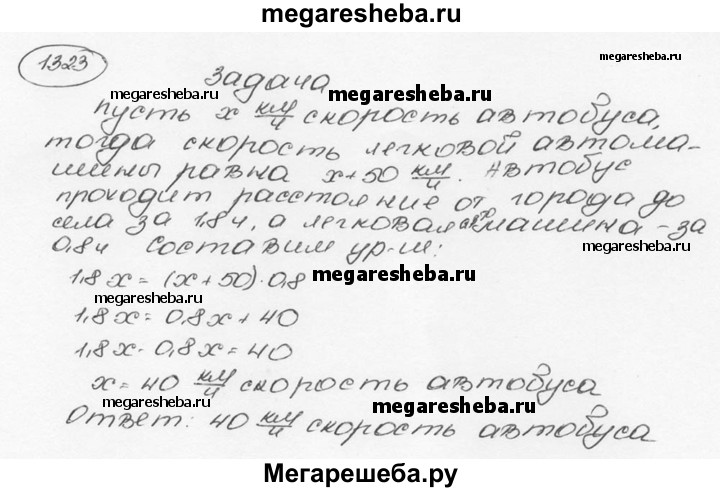 megaresheba.ru
1323
megaresheba.ru
Задача
megaresheba.ru
megaresheba.ru
пусть x км/ч скорость автобуса,
тогда скорость легковой автома-
шины равна x+50 км/ч. Автобус
проходит расстояние от города до
села за 1,8ч, а легковая машина - за
megaresheba.ru
0,8ч Составим ур-ие:
1,8x = (x+50)·0,8
megaresheba.ru
megaresheba.ru
1,8x = 0,8x + 40
1,8x - 0,8x = 40
x = 40 км/ч скорость автобуса
megaresheba.ru
megaresheba.ru
Ответ: 40 км/ч скорость автобуса
Мегарешеба.ру